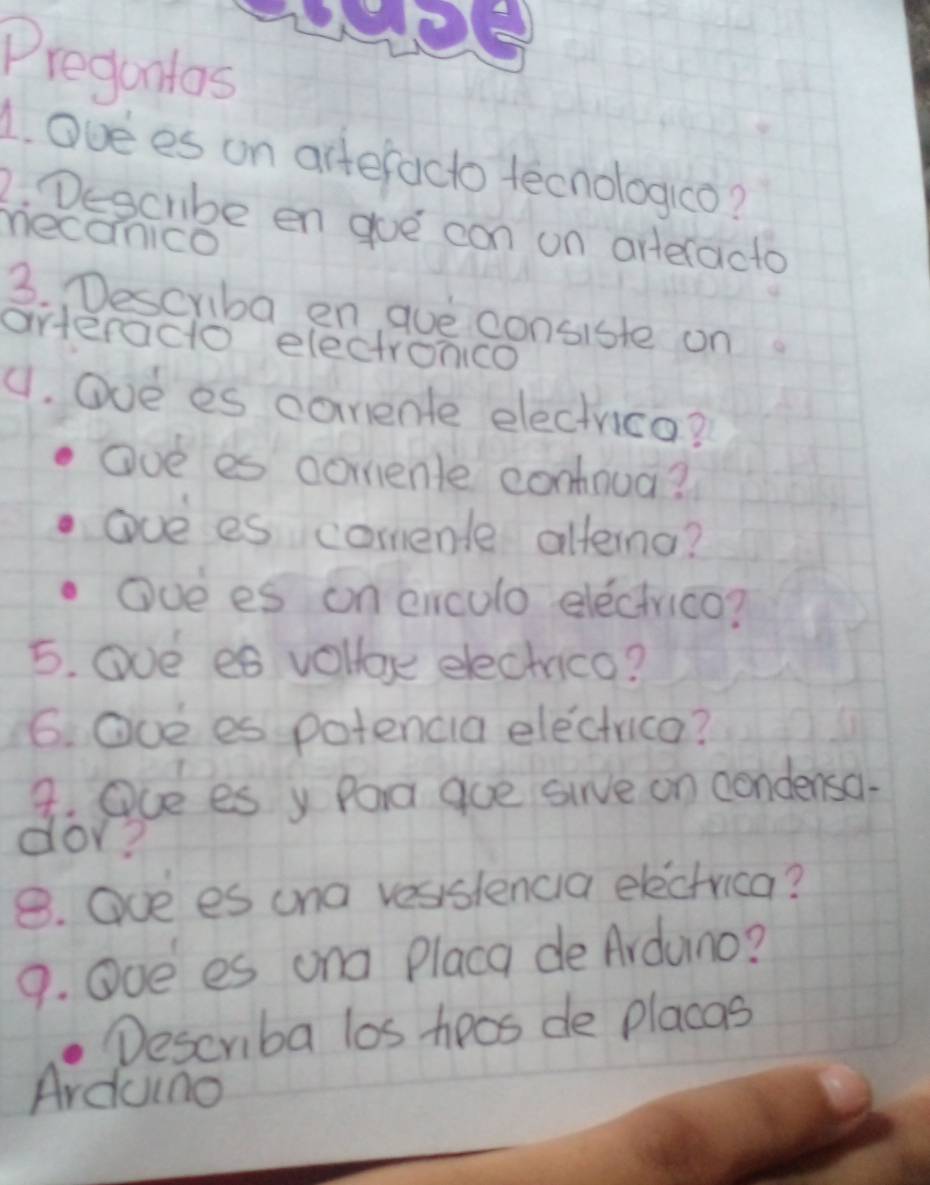 Pregontas
1. Qué es un artefacto técnologico?
2. Describe en qué con un artefacto
mecánico
3. Describa en que consiste un
artefacto electronico
4. Qué es corriente electrica?
• Qué es corriente continua?
• Qué es corriente alterna?
• Qué es un circulo eléctrico?
5. Qué es voltaje electrico?
6. Qué es potencia eléctrica?
7. Qué es y Para que sirve un condensa-
dor?
8. Qué es una resistencia eléctrica?
9. Qué es una Placa de Arduino?
• Describa los tipos de placas
Arduino